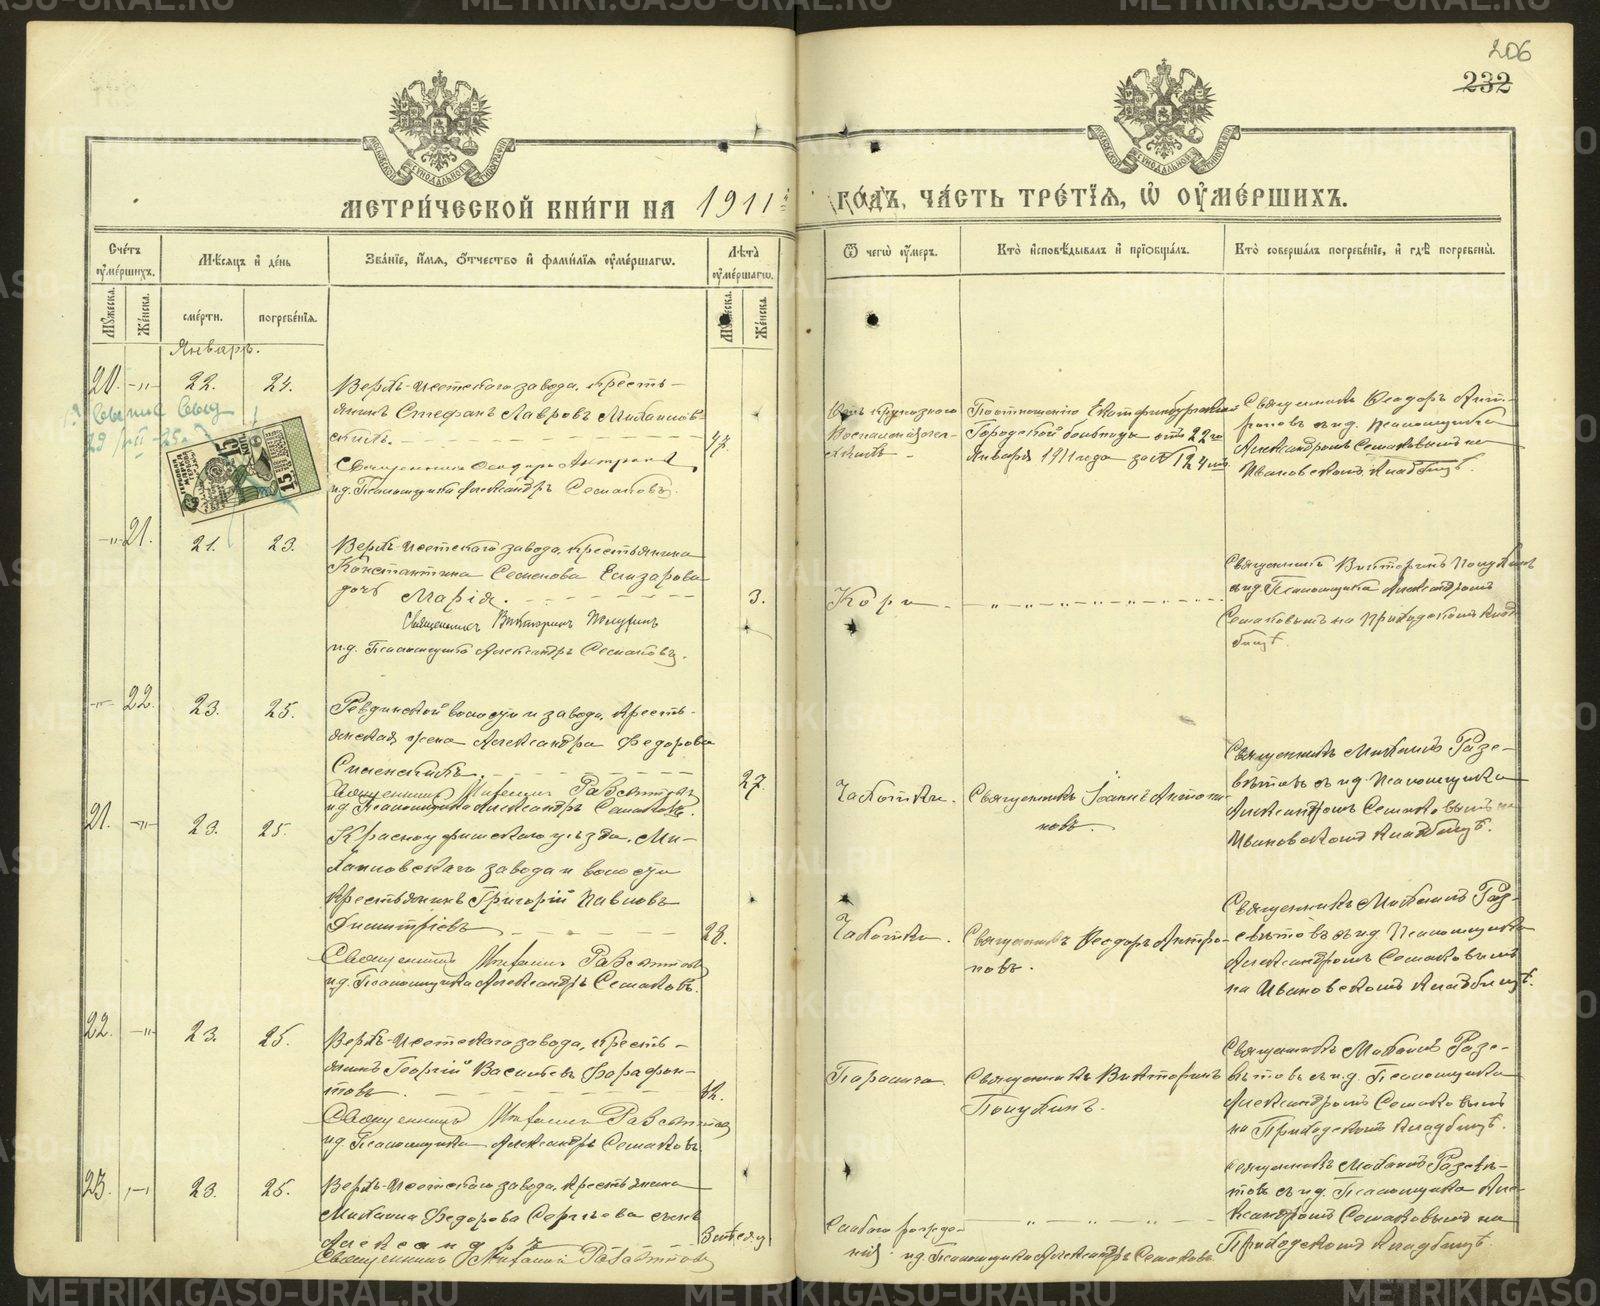 206
232
МЕТРИ́ЧЕСКОЙ КНИ́ГИ НА 1911 ГО́ДЪ, ЧА́СТЬ ТРЕ́ТІѦ, Ѡ ОУМЕ́РШИХЪ.
Сче́тъ оумéршихъ.
Мꙋ́жеска.
Же́нска.
Мѣ́сѧцъ и де́нь
сме́рти.
погребе́нїѧ.
Зва́нїе, и́мѧ, о́тчество и фами́лїѧ оумéршагѡ.
Лѣта̀ оумéршагѡ.
Мꙋ́жеска.
Же́нска.
Ѿ чегѡ̀ оу́меръ.
Кто̀ и҆сповѣ́дывалъ и прїѡбща́лъ.
Кто̀ соверша́лъ погребе́нїе, и гдѣ̀ погребены̀.
Январь.
20. -"- 22. 24.
Верхъ-Исетскаго завода, кресть-
янинъ Стефанъ Лавровъ Михайлов-
скихъ.
47.
Священникъ Феодоръ Антроповъ
и.д. Псаломщика Александръ Семаковъ.
Отъ крупознаго
воспаленія лег-
кихъ
По отношенію Екатеринбургской
Городской больницы отъ 22го
Января 1911 года за № 124
Священникъ Феодоръ Ант-
роповъ съ и.д. Псаломщика
Александромъ Семаковымъ на
Ивановскомъ кладбищѣ.
-"- 21. 21. 23.
Верхъ-Исетскаго завода, крестьянина
Константина Семенова Елизарова
дочь Марія.
3.
Священникъ Викторинъ Полукинъ
и.д. Псаломщика Александръ Семаковъ.
Кори.
Священникъ Викторинъ
съ и.д. Псаломщика Александромъ
Семаковымъ на Приходскомъ клад-
бищѣ.
-"- 22. 23. 25.
Ревдинской волости и завода, кресть-
янская жена Александра Федорова
27.
Священникъ Михаилъ Разсвѣтовъ
и.д. Псаломщика Александръ Семаковъ.
Чахотки.
Священникъ Іоаннъ Антоно-
новъ.
Священникъ Михаилъ Разс-
вѣтовъ съ и.д. Псаломщика
Александромъ Семаковымъ на
Ивановскомъ кладбищѣ.
21. -"- 23. 25.
Красноуфимскаго уѣзда, Ми-
хайловскаго завода и волости
крестьянинъ Григорій Павловъ
Димитріевъ
28.
Священникъ Михаилъ Разсвѣтовъ
и.д. Псаломщика Александръ Семаковъ.
Чахотки.
Священникъ Феодоръ Антро-
повъ.
Священникъ Михаилъ Раз-
свѣтовъ съ и.д. Псаломщика
Александромъ Семаковымъ
на Ивановскомъ кладбищѣ.
22. -"- 23. 25.
Верхъ-Исетскаго завода, кресть-
янинъ Георгій Васильевъ Фарафон-
товъ.
Священникъ Михаилъ Разсвѣтовъ
и.д. Псаломщика Александръ Семаковъ.
Паралича.
Священникъ Викторинъ
Полукинъ.
Священникъ Михаилъ Разс-
вѣтовъ съ и.д. Псаломщика
Александромъ Семаковымъ
на Приходскомъ кладбищѣ.
23. -"- 23. 25.
Верхъ-Исетскаго завода, крестьянина
Михаила Федорова Сергѣева сынъ
Александръ
3 недѣли
Священникъ Михаилъ Разсвѣтовъ
Слабаго рожде-
нія.
и.д. Псаломщика Александръ Семаковъ.
Священникъ Михаилъ Разсвѣ-
товъ съ и.д. Псаломщика Але-
ксандромъ Семаковымъ на
Приходскомъ кладбищѣ.
METRIKI.GASO-URAL.RU